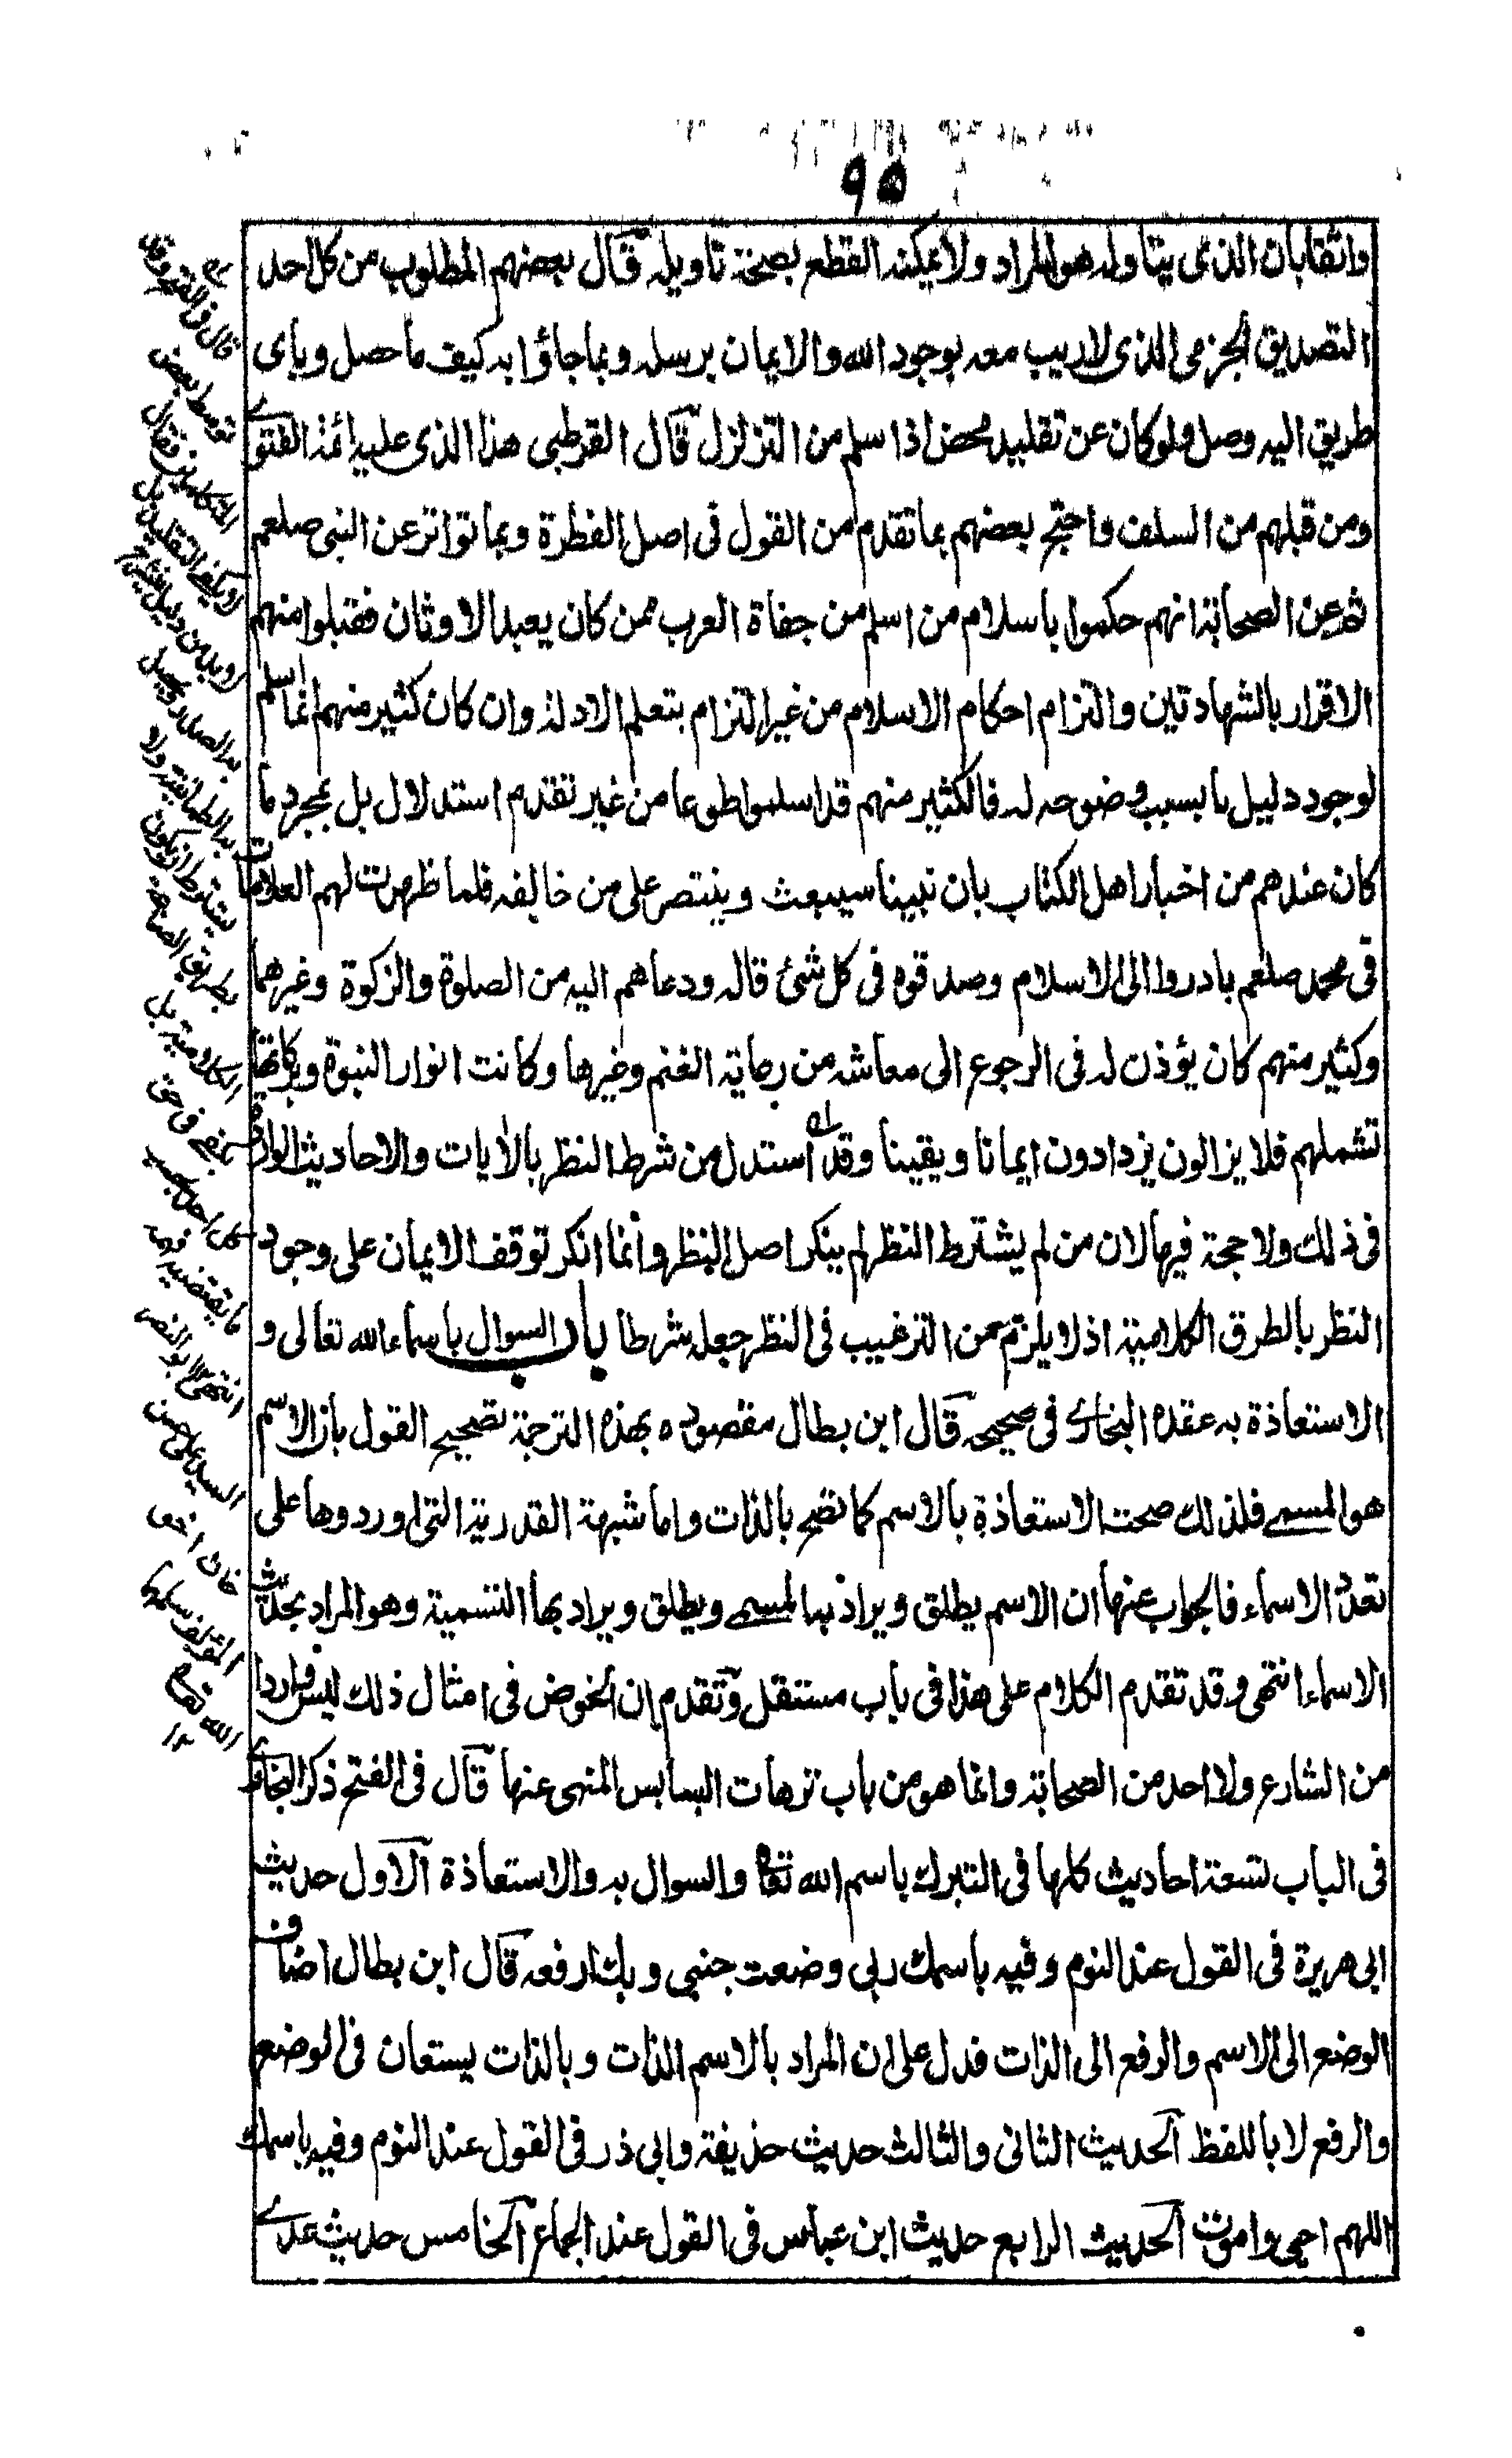 ٩٥
واثقا بان الذى يتاوله هو المراد ولا يمكنه القطع بصحة تاويله قال بعضهم المطلوب من كل احد
التصديق الجزمى الذى لا ريب معه بوجود الله والايمان برسله وبما جاؤا به كيف ما حصل وباى
طريق اليه وصل ولو كان عن تقليد محض اذا سلم من التزلزل قال القرطبى هذا الذى عليه ائمة الفتوى
ومن قبلهم من السلف واحتج بعضهم بما تقدم من القول فى اصل الفطرة وبما تواتر عن النبى صلعم
ثم عن الصحابة انهم حكموا باسلام من اسلم من جفاة العرب ممن كان يعبد الاوثان فقبلوا منهم
الاقرار بالشهادتين والتزام احكام الاسلام من غير التزام بتعلم الادلة وان كان كثير منهم انما اسلم
لوجود دليل ما بسبب وضوحه له فالكثير منهم قد اسلموا طوعا من غير تقدم استدلال بل بمجرد ما
كان عندهم من اخبار اهل الكتاب بان نبينا سيبعث وينتصر على من خالفه فلما ظهرت لهم العلامات
فى محمد صلعم بادروا الى الاسلام وصدقوه فى كل شئ قاله ودعاهم اليه من الصلوة والزكوة وغيرهما
وكثير منهم كان يؤذن له فى الرجوع الى معاشه من رعاية الغنم وغيرها وكانت انوار النبوة وبركاتها
تشملهم فلا يزالون يزدادون ايمانا ويقينا وقد استدل من شرط النظر بالآيات والاحاديث الواردة
فى ذلك ولا حجة فيها لان من لم يشترط النظر لم ينكر اصل النظر وانما انكر توقف الايمان على وجود
النظر بالطرق الكلامية اذ لا يلزم من الترغيب فى النظر جعله شرطا باب السوال باسماء الله تعالى و
الاستعاذة به عقده البخارى فى صحيحه قال ابن بطال مقصوده بهذه الترجمة تصحيح القول بان الاسم
هو المسمى فلذلك صحت الاستعاذة بالاسم كما تصح بالذات واما شبهة القدرية التى اوردوها على
تعدد الاسماء فالجواب عنها ان الاسم يطلق ويراد به المسمى ويطلق ويراد بها التسمية وهو المراد بحديث
الاسماء انتهى وقد تقدم الكلام على هذا فى باب مستقل وتقدم ان الخوض فى امثال ذلك ليس واردا
من الشارع ولا احد من الصحابة وانما هو من باب ترهات البسابس المنهى عنها قال فى الفتح ذكر البخارى
فى الباب تسعة احاديث كلها فى التبرك باسم الله تعا والسوال به والاستعاذة الاول حديث
ابى هريرة فى القول عند النوم وفيه باسمك ربى وضعت جنبى وبك ارفعه قال ابن بطال اضاف
الوضع الى الاسم والرفع الى الذات فدل على ان المراد بالاسم الذات وبالذات يستعان فى الوضع
والرفع لا باللفظ الحديث الثانى والثالث حديث حذيفة وابى ذر فى القول عند النوم وفيه باسمك
اللهم احيى واموت الحديث الرابع حديث ابن عباس فى القول عند الجماع الخامس حديث عدى
قال فى الفتح وقد
توسط بعض
المتكلمين فقال
لا يكفى التقليد بل
لا بد من دليل ينشرح
به الصدر وتحصل
به الطمانينة ولا
يشترط ان يكون
بطريق الصناعة
الكلامية بل
يكفى فى حق
كل احد بحسب
ما يقتضيه فهمه
انتهى ابو النصر
السيد على حسن
خان
المؤلف سلمهما
الله تعالى
١٢